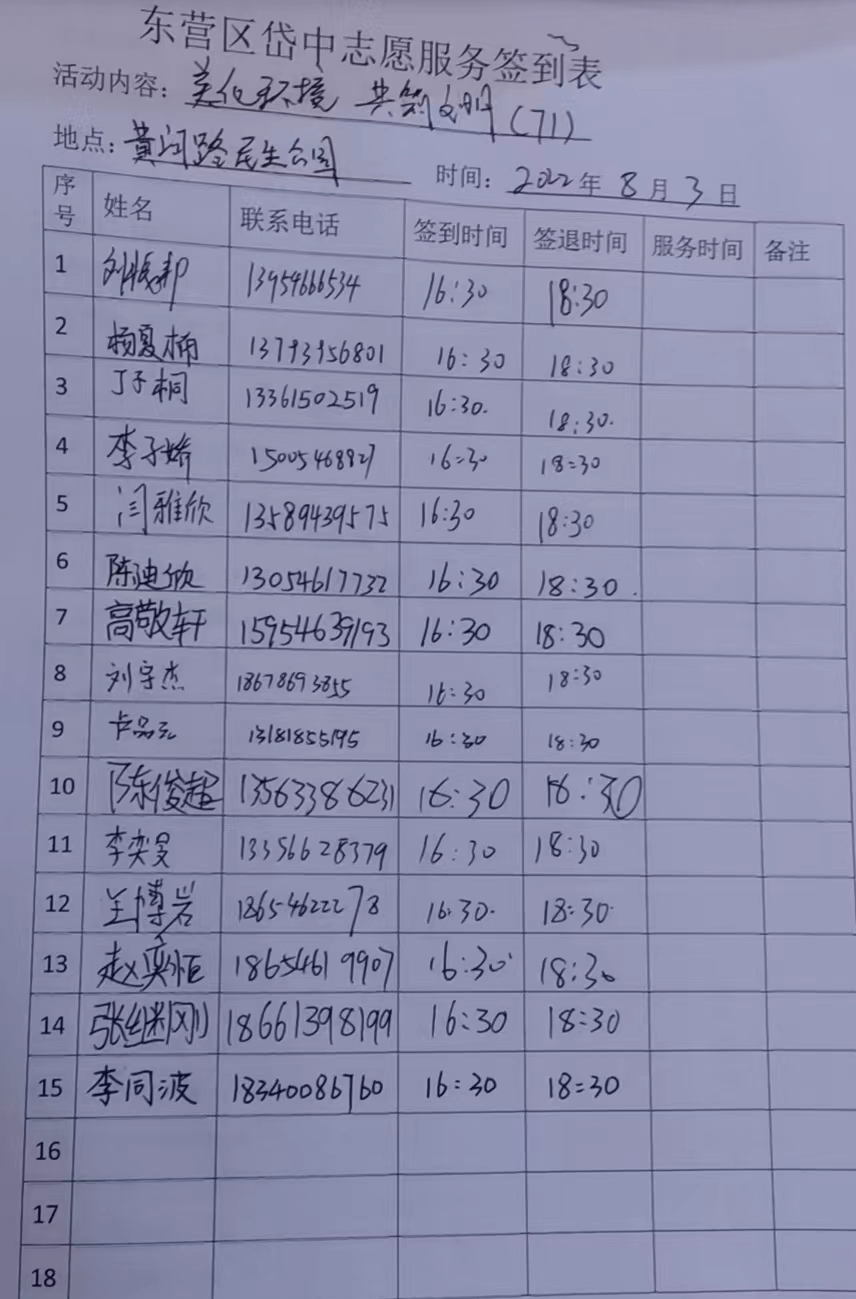 东营区岱中志愿服务签到表
活动内容：美化环境 共筑文明（71）
地点：黄河路民生公园 时间：2022年8月3日
序号 姓名 联系电话 签到时间 签退时间 服务时间 备注
1 刘振邦 13954666534 16:30 18:30
2 杨夏楠 13793956801 16:30 18:30
3 丁子桐 13361502519 16:30. 18:30.
4 李子娇 15005468827 16:30 18:30
5 闫雅欣 13589439575 16:30 18:30
6 陈迪欣 13054617732 16:30 18:30.
7 高敬轩 15954639193 16:30 18:30
8 刘宇杰 18678693855 16:30 18:30
9 13181855195 16:30 18:30
10 陈俊超 13563386231 16:30 18:30
11 李奕旻 13356628379 16:30 18:30
12 王博岩 18654622278 16:30. 18:30.
13 赵奕恒 18654619907 16:30 18:30
14 张继刚 18661398199 16:30 18:30
15 李同波 18340086760 16:30 18:30
16
17
18